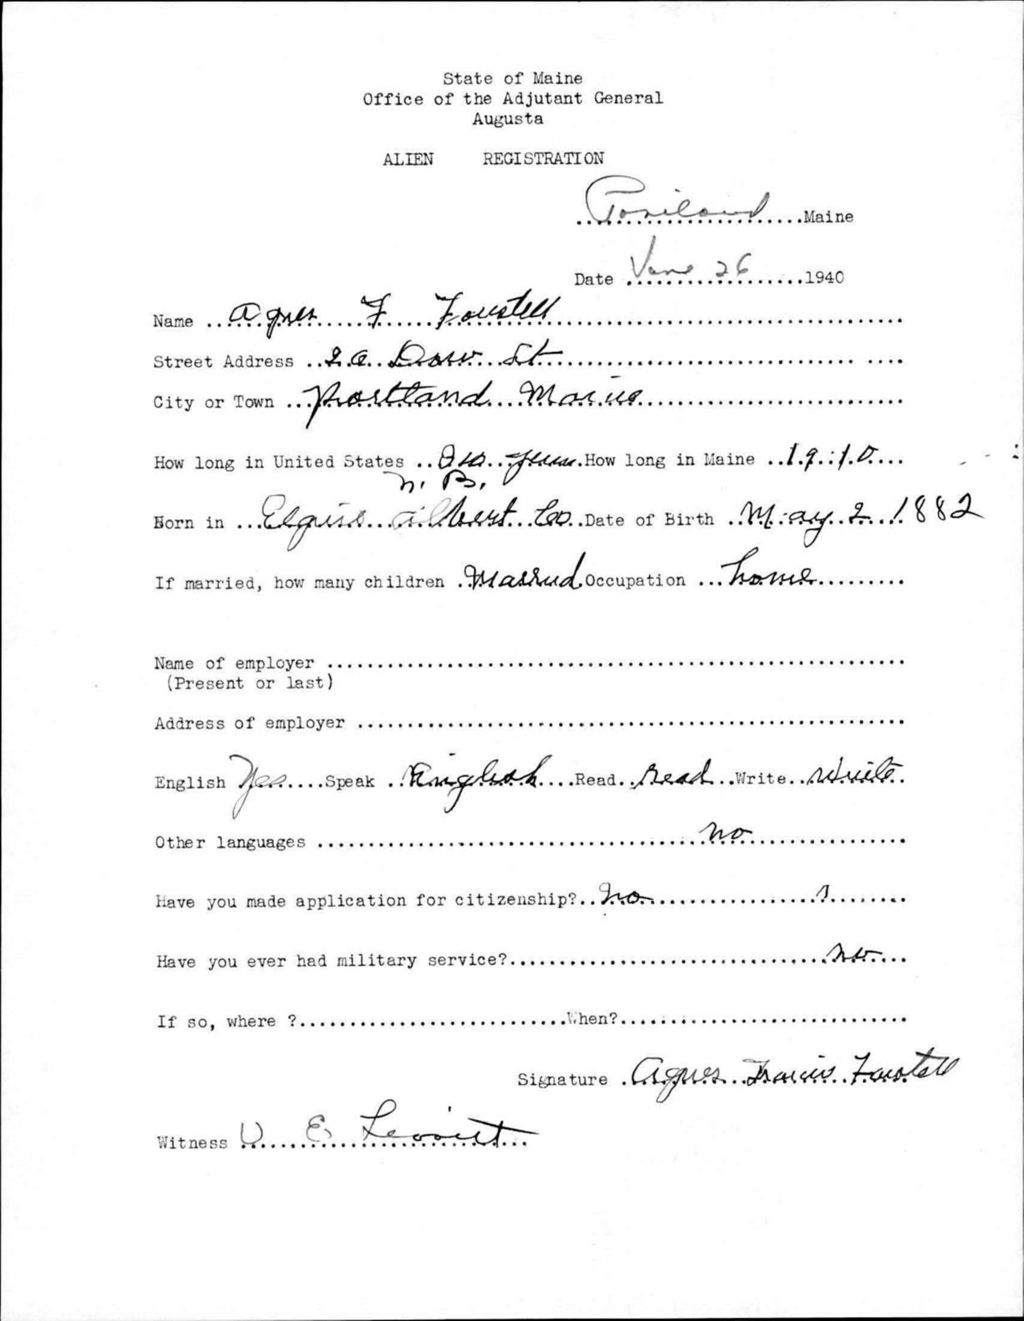 State of Maine
Office of the Adjutant General
Augusta
ALIEN REGISTRATION
Portland Maine
Date June 26 1940
Name Agnes F
Street Address Dow St
City or Town Portland Maine
How long in United States How long in Maine 1910
N. B.
Born in Albert Co Date of Birth May 2 1882
If married, how many children Married Occupation home
Name of employer
(Present or last)
Address of employer
English Yes Speak English Read Read Write Write
Other languages no
Have you made application for citizenship? No
Have you ever had military service? No
If so, where ? When?
Signature Agnes Francis
Witness E